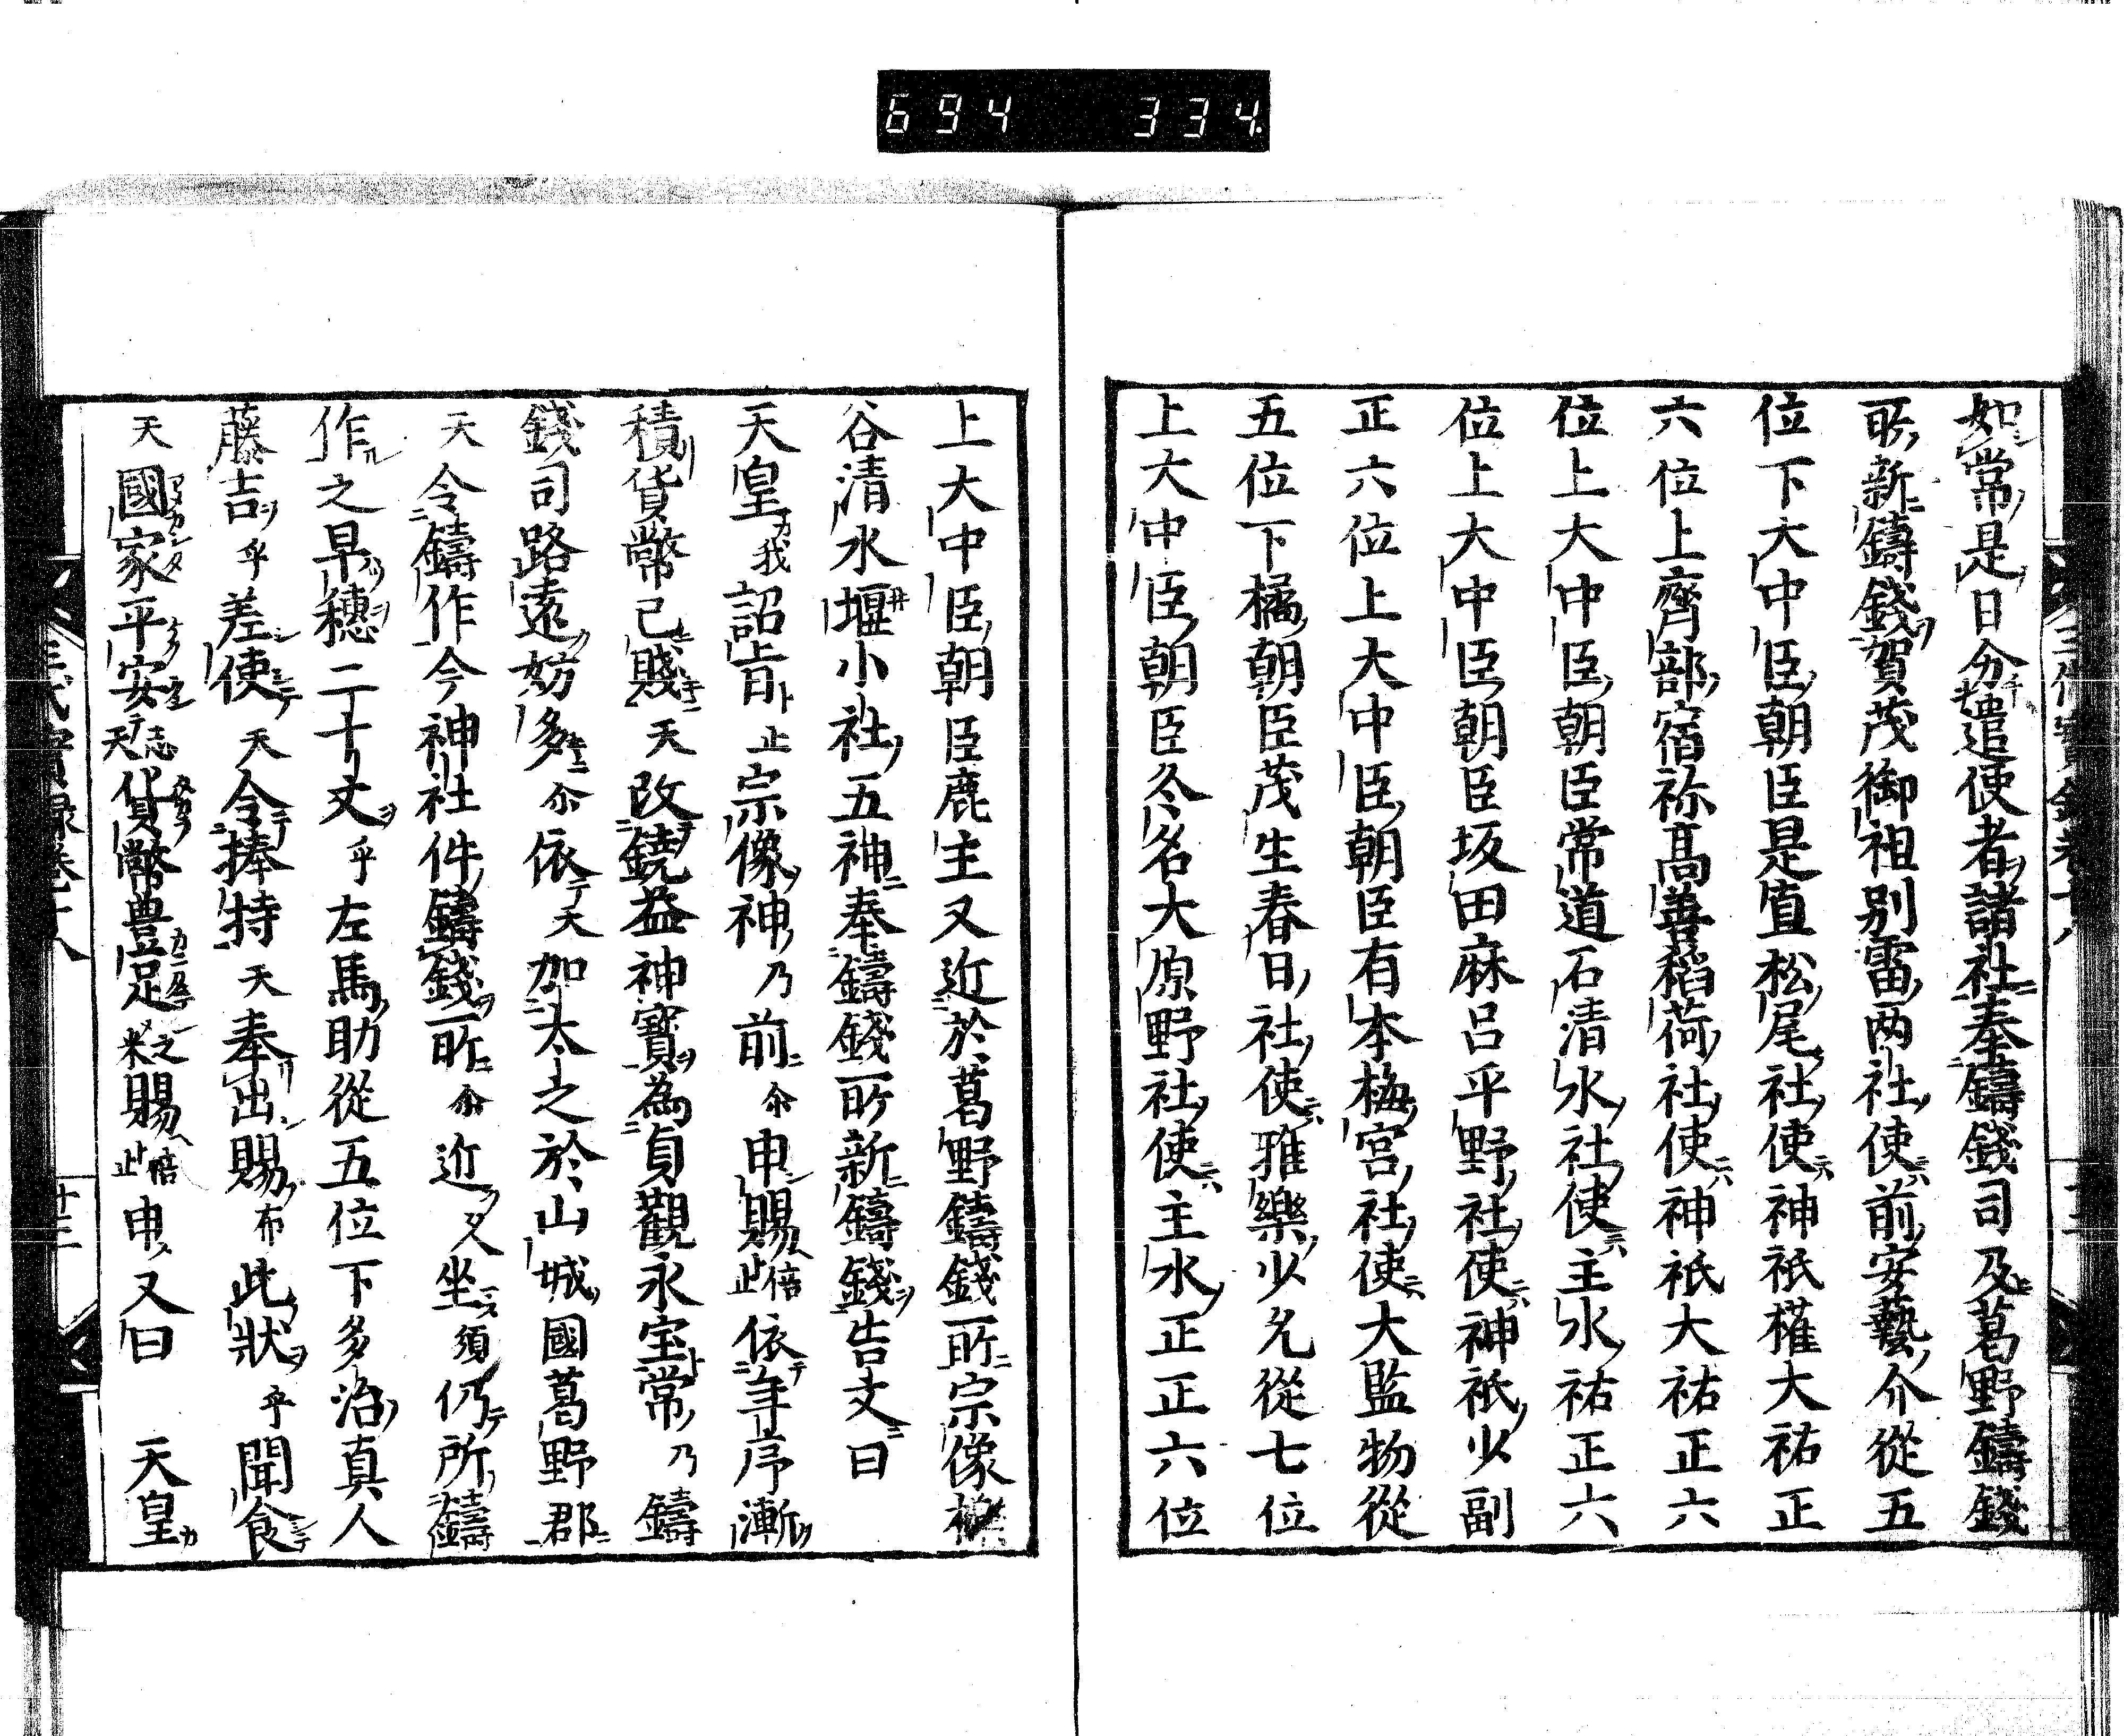 694 334.
如常是日分遣使者諸社奉鑄錢司及葛野鑄錢
所新鑄錢賀茂御祖別雷两社使前安藝介從五
位下大中臣朝臣是直松尾社使神祇權大祐正
六位上齊部宿祢髙善稻荷社使神祇大祐正六
位上大中臣朝臣常道石清水社使主水祐正六
位上大中臣朝臣坂田麻呂平野社使神祇少副
正六位上大中臣朝臣有本梅宮社使大監物從
五位下橘朝臣茂生春日社使雅樂少允從七位
上大中臣朝臣冬名大原野社使主水正正六位
上大中臣朝臣鹿主又近於葛野鑄錢所宗像
谷清水堰小社五神奉鑄錢所新鑄錢告文曰
天皇我詔旨止宗像神乃前尒申賜倍止依年序漸
積貨幣已賤天改鐃益神寶為貞觀永宝常乃鑄
錢司路遠妨多尒依天加太之於山城國葛野郡
天令鑄作今神社件鑄錢所尒近久坐須仍所鑄
作之早穗二十丈乎左馬助從五位下多治真人
藤吉乎差使天令捧持天奉出賜布此狀乎聞食
天國家平安志天貨幣豊足之米賜倍止申又曰　天皇